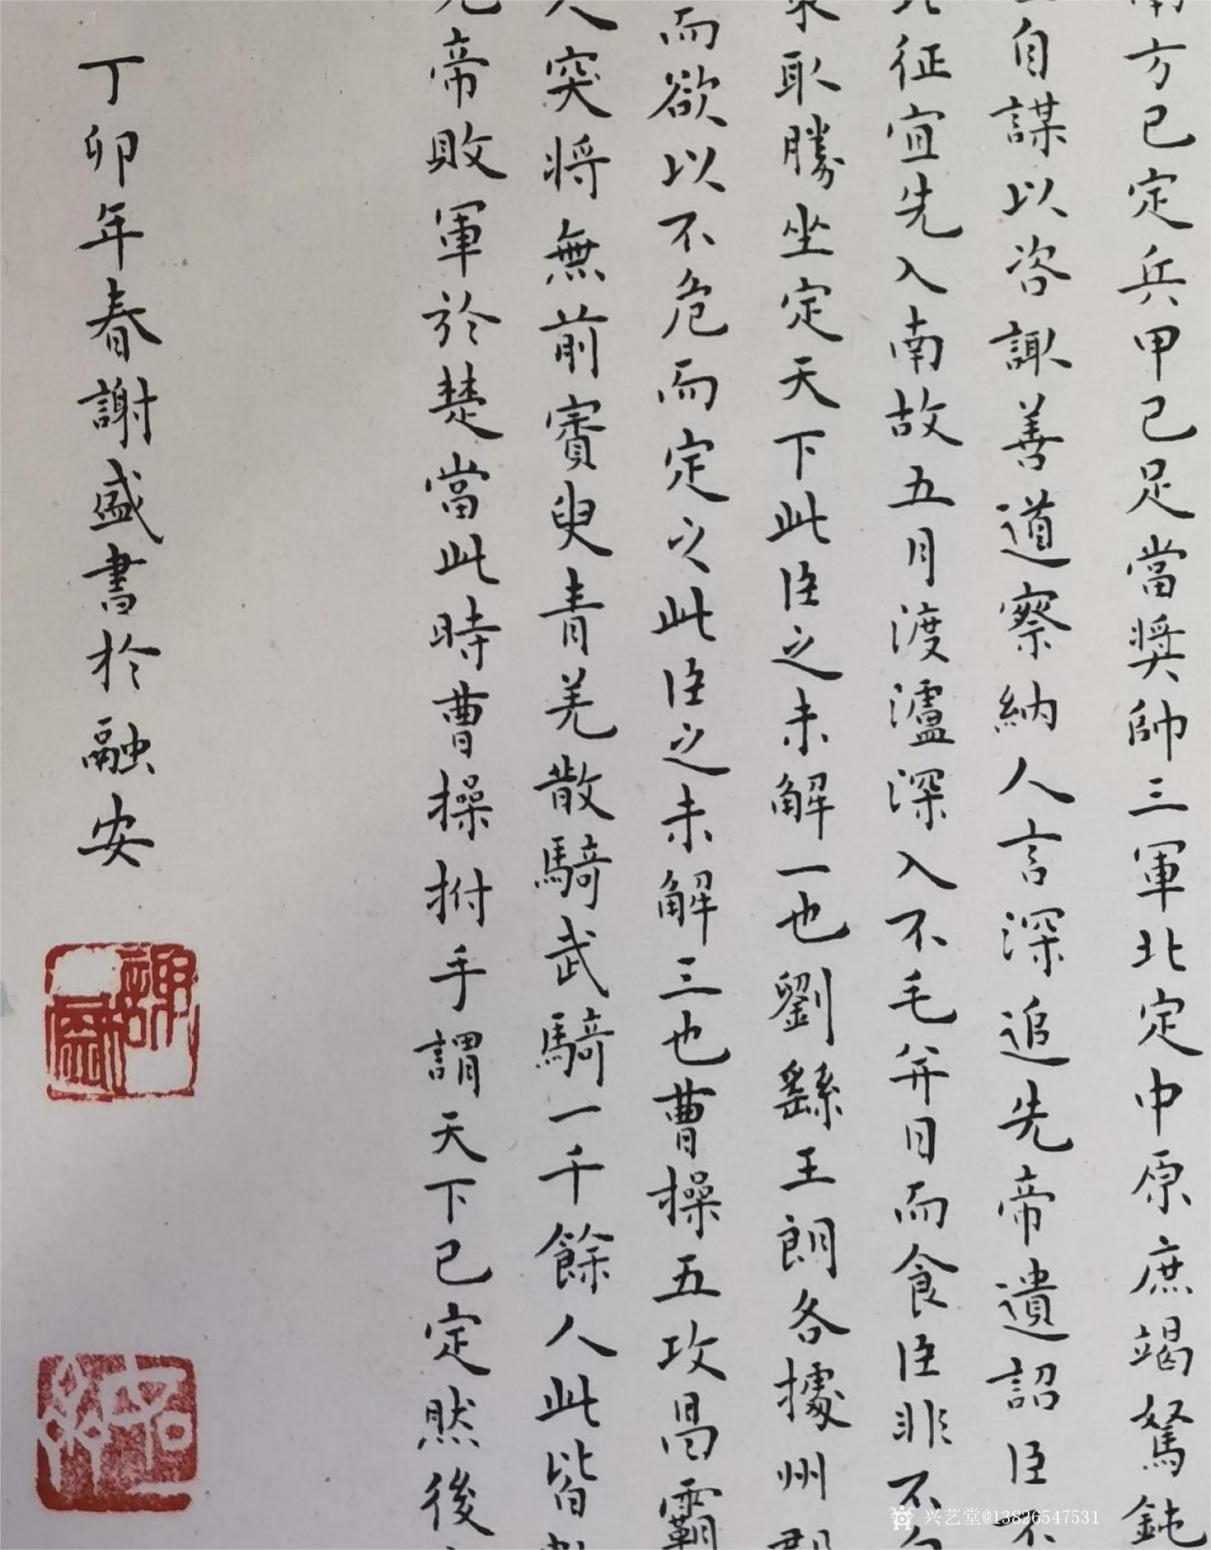 南方已定兵甲已足當奬帥三軍北定中原庶竭駑鈍
自謀以咨諏善道察納人言深追先帝遺詔臣不
北征宜先入南故五月渡瀘深入不毛并日而食臣非不
取勝坐定天下此臣之未解一也劉繇王朗各據州郡
而欲以不危而定之此臣之未解三也曹操五攻昌霸
人突将無前賓叟青羌散騎武騎一千餘人此皆數
先帝敗軍於楚當此時曹操拊手謂天下已定然後
丁卯年春謝盛書於融安
兴艺堂@13826547531